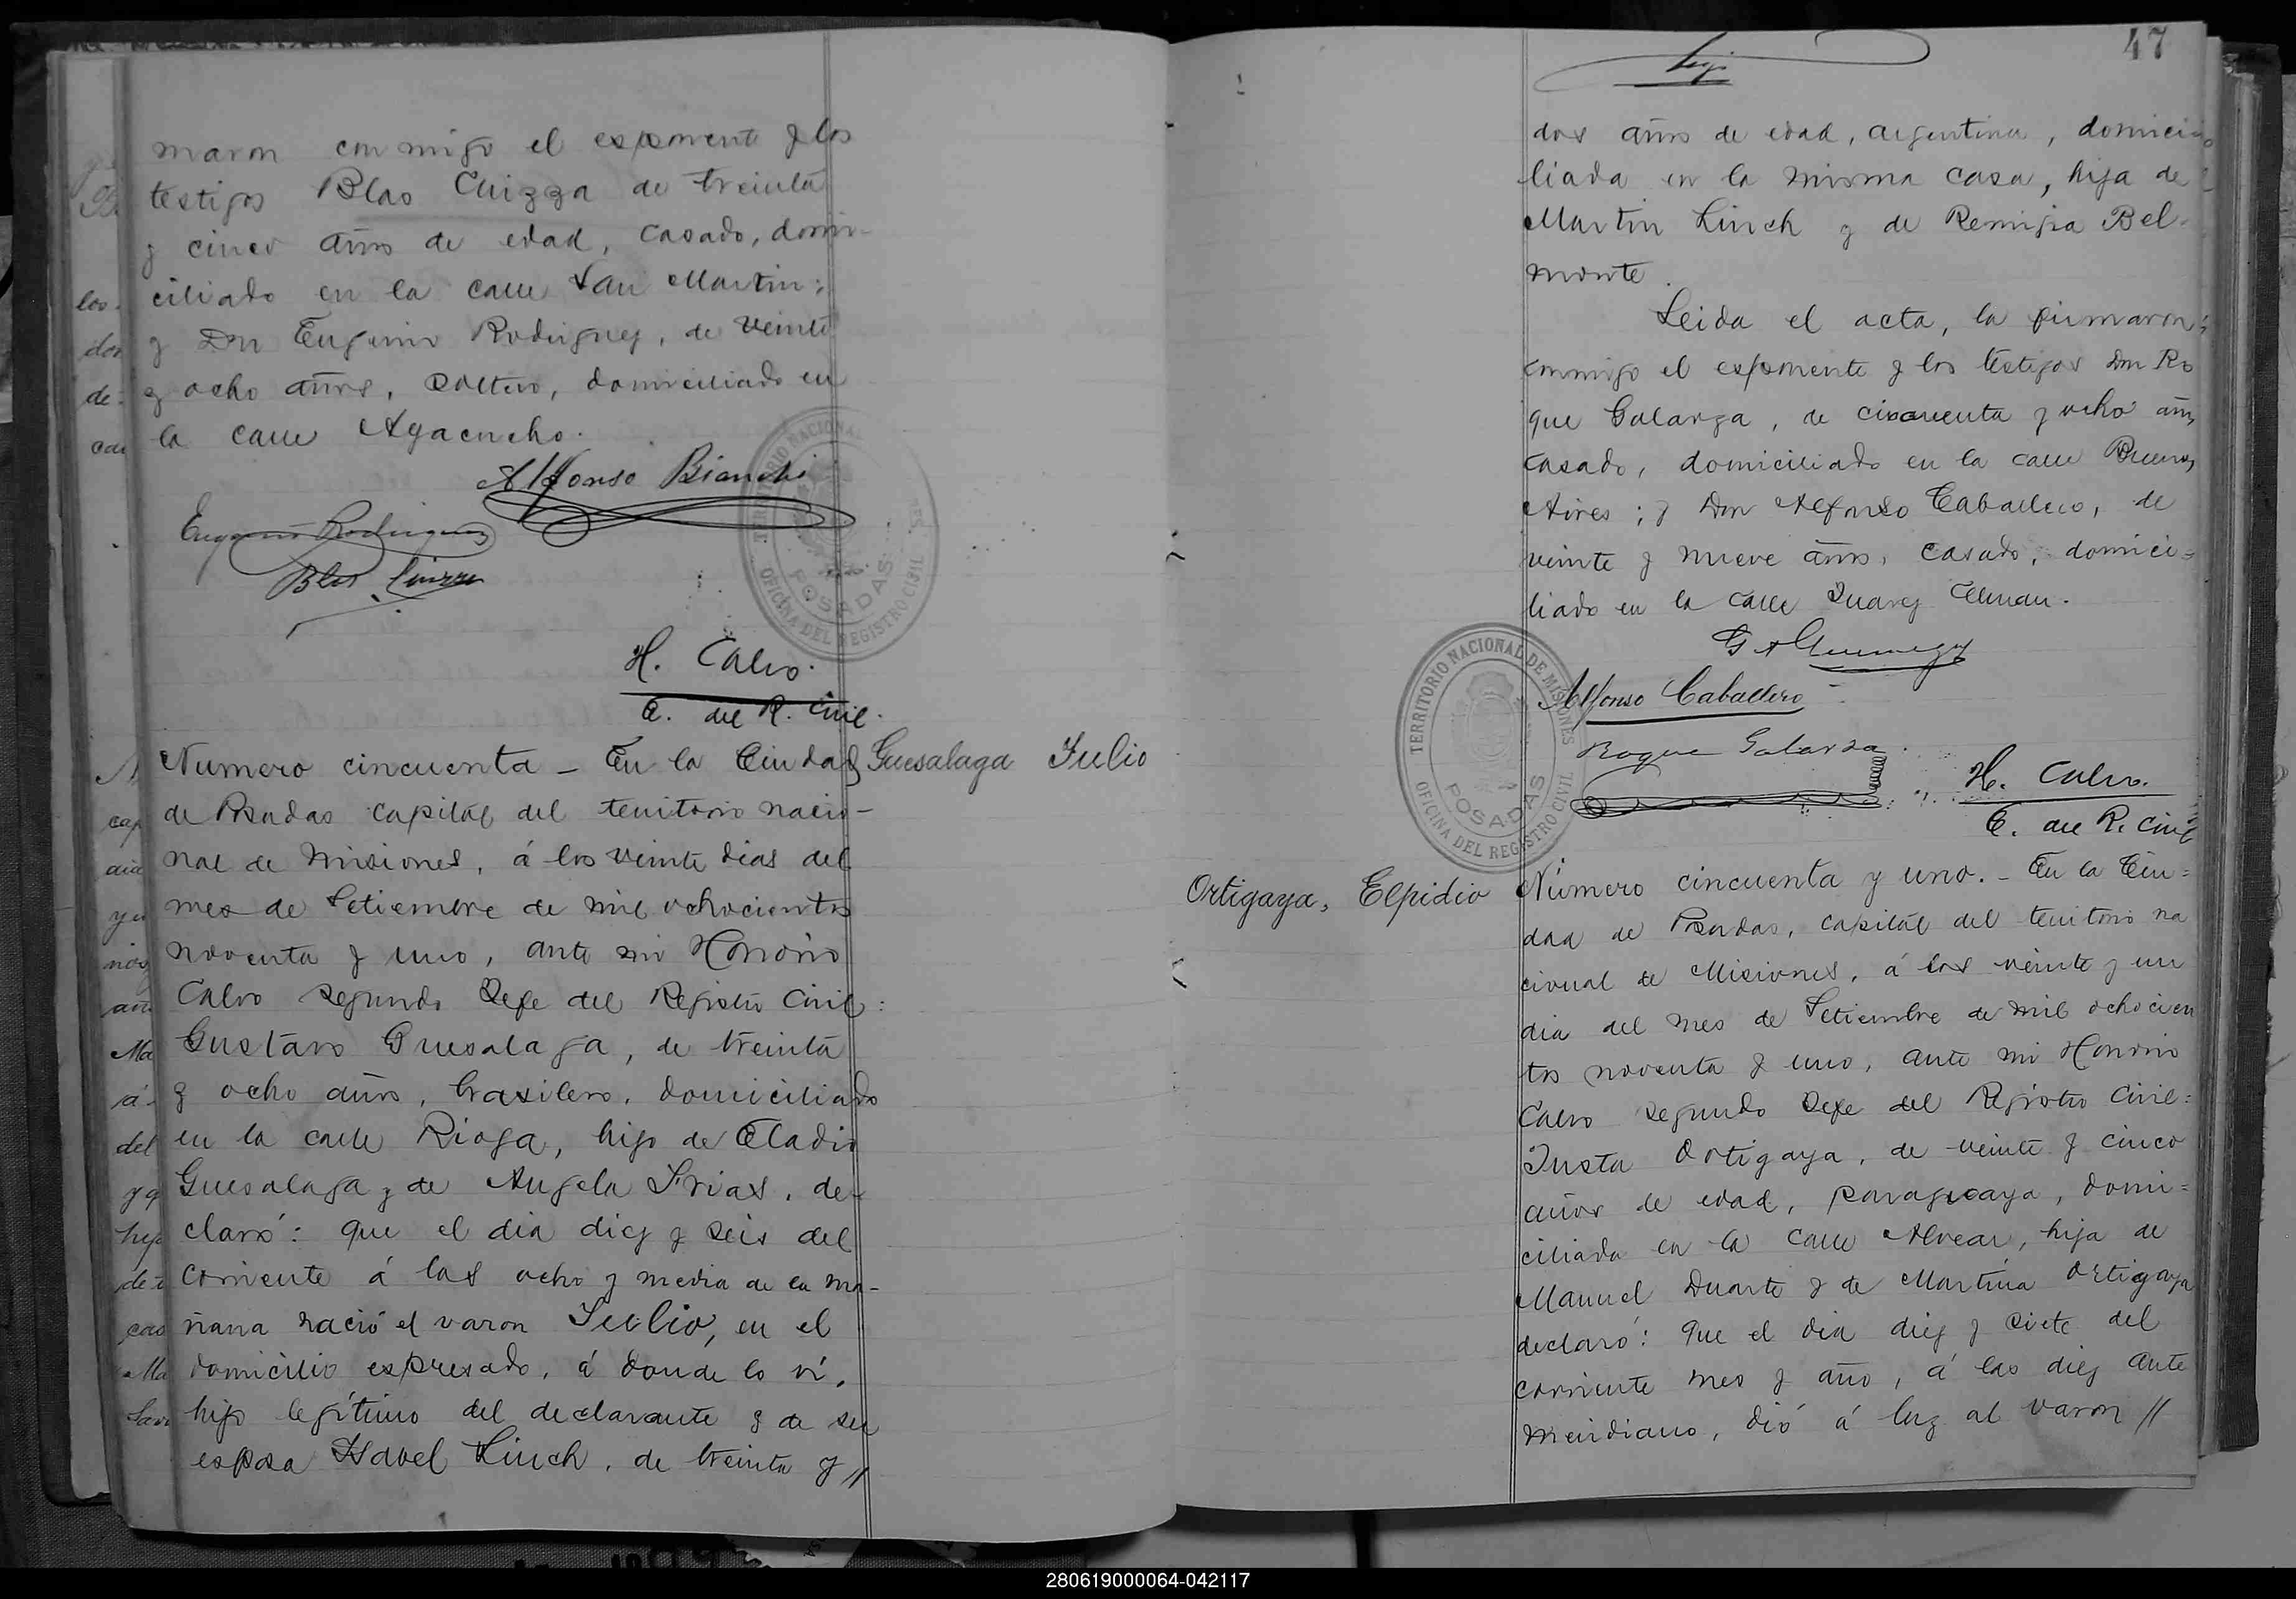 maron conmigo el esponente y los
testigos Blas Chizza de treinta
y cinco años de edad, casado, domi-
ciliado en la calle San Martin;
y Dn Eugenio Rodriguez, de veinte
y ocho años, soltero, domiciliado en
la calle Ayacucho.
Alfonso Bianchi
Eugenio Rodriguez
Blas
H. Calvo.
E. del R. Civil.
TERRITORIO NACIONAL
OFICINA DEL REGISTRO CIVIL
POSADAS
Guesalaga Julio
Numero cincuenta - En la Ciudad
de Posadas capital del territorio nacio-
nal de Misiones, á los veinte dias del
mes de Setiembre de mil ochocientos
noventa y uno, ante mi Honorio
Calvo segundo Jefe del Registro Civil:
Gustavo Guesalaga, de treinta
y ocho años, brasilero, domiciliado
en la calle Rioja, hijo de Eladio
Guesalaga y de Angela Frias, de-
claró: que el dia diez y seis del
corriente á las ocho y media de la ma-
ñana nació el varon Julio, en el
domicilio espresado, á donde lo ví,
hijo legítimo del declarante y de su
esposa Isabel Linch, de treinta y //
47
dos años de edad, argentina, domici
liada en la misma casa, hija de
Martin Linch y de Remigia Bel-
monte.
Leida el acta, la firmaron
conmigo el esponente y los testigos Dn Ro
que Galarza, de cincuenta y ocho años,
casado, domiciliado en la calle Buenos
Aires; y Don Alfonso Caballero, de
veinte y nueve años, casado, domici=
liado en la calle Juarez Celman.
Alfonso Caballero
Roque Galarza
H. Calvo.
E. del R. Civil
TERRITORIO NACIONAL DE MISIONES
OFICINA DEL REGISTRO CIVIL
POSADAS
Ortigaya, Elpidio
Número cincuenta y uno. - En la Ciu=
dad de Posadas, capital del territorio na
cional de Misiones, á los veinte y un
dia del mes de Setiembre de mil ochocien
tos noventa y uno, ante mi Honorio
Calvo segundo Jefe del Registro Civil:
Justa Ortigaya, de veinte y cinco
años de edad, paraguaya, domi=
ciliada en la calle Alvear, hija de
Manuel Duarte y de Martina Ortigaya
declaró: que el dia diez y siete del
corriente mes y año, á las diez ante
meridiano, dió á luz al varon //
280619000064-042117